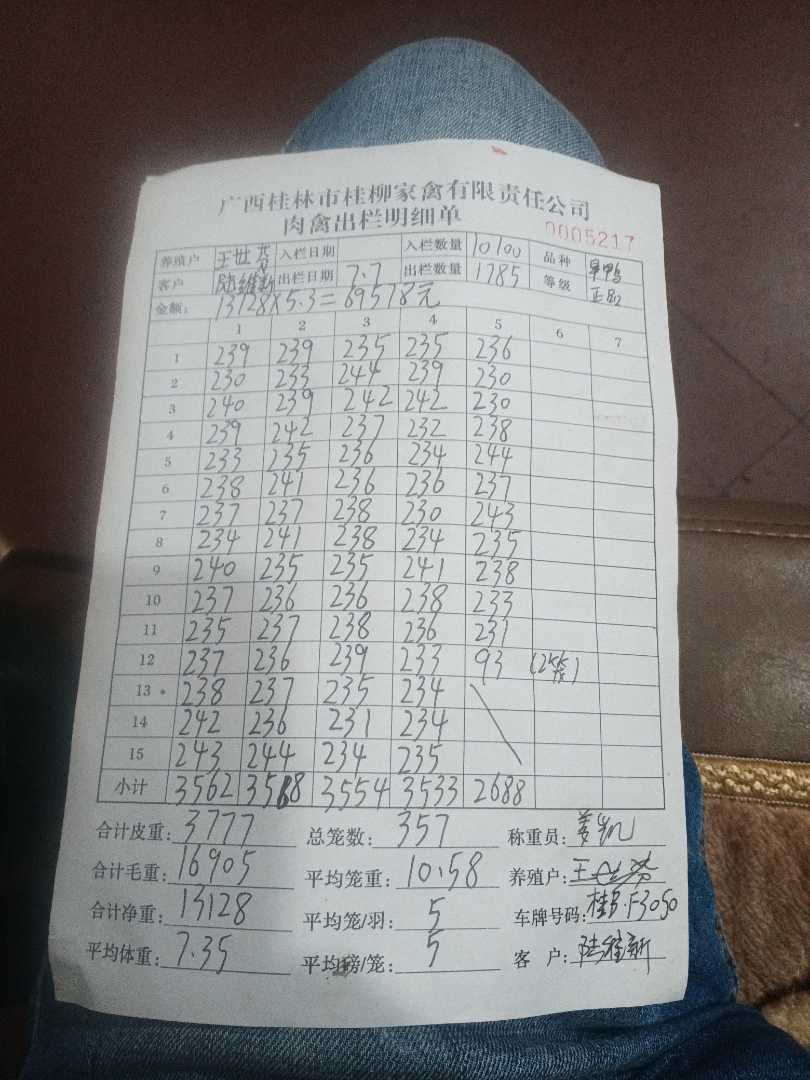 广西桂林市桂柳家禽有限责任公司
肉禽出栏明细单
0005217
养殖户 王世芬 入栏日期 入栏数量 10100 品种 旱鸭
客户 陆维新 出栏日期 7.7 出栏数量 1785 等级 正品
金额: 13128X5.3=69578元
1 2 3 4 5 6 7
1 239 239 235 235 236
2 230 233 244 239 230
3 240 239 242 242 230
4 239 242 237 232 238
5 233 235 236 234 244
6 238 241 236 236 237
7 237 237 238 230 243
8 234 241 238 234 235
9 240 235 235 241 238
10 237 236 236 238 233
11 235 237 238 236 231
12 237 236 239 233 93
13 238 237 235 234
14 242 236 231 234
15 243 244 234 235
小计 3562 3568 3554 3533 2688
合计皮重: 3777 总笼数: 357 称重员:
合计毛重: 16905 平均笼重: 10.58 养殖户: 王世芬
合计净重: 13128 平均笼/羽: 5 车牌号码: 桂B·F3050
平均体重: 7.35 平均磅/笼: 5 客 户: 陆维新